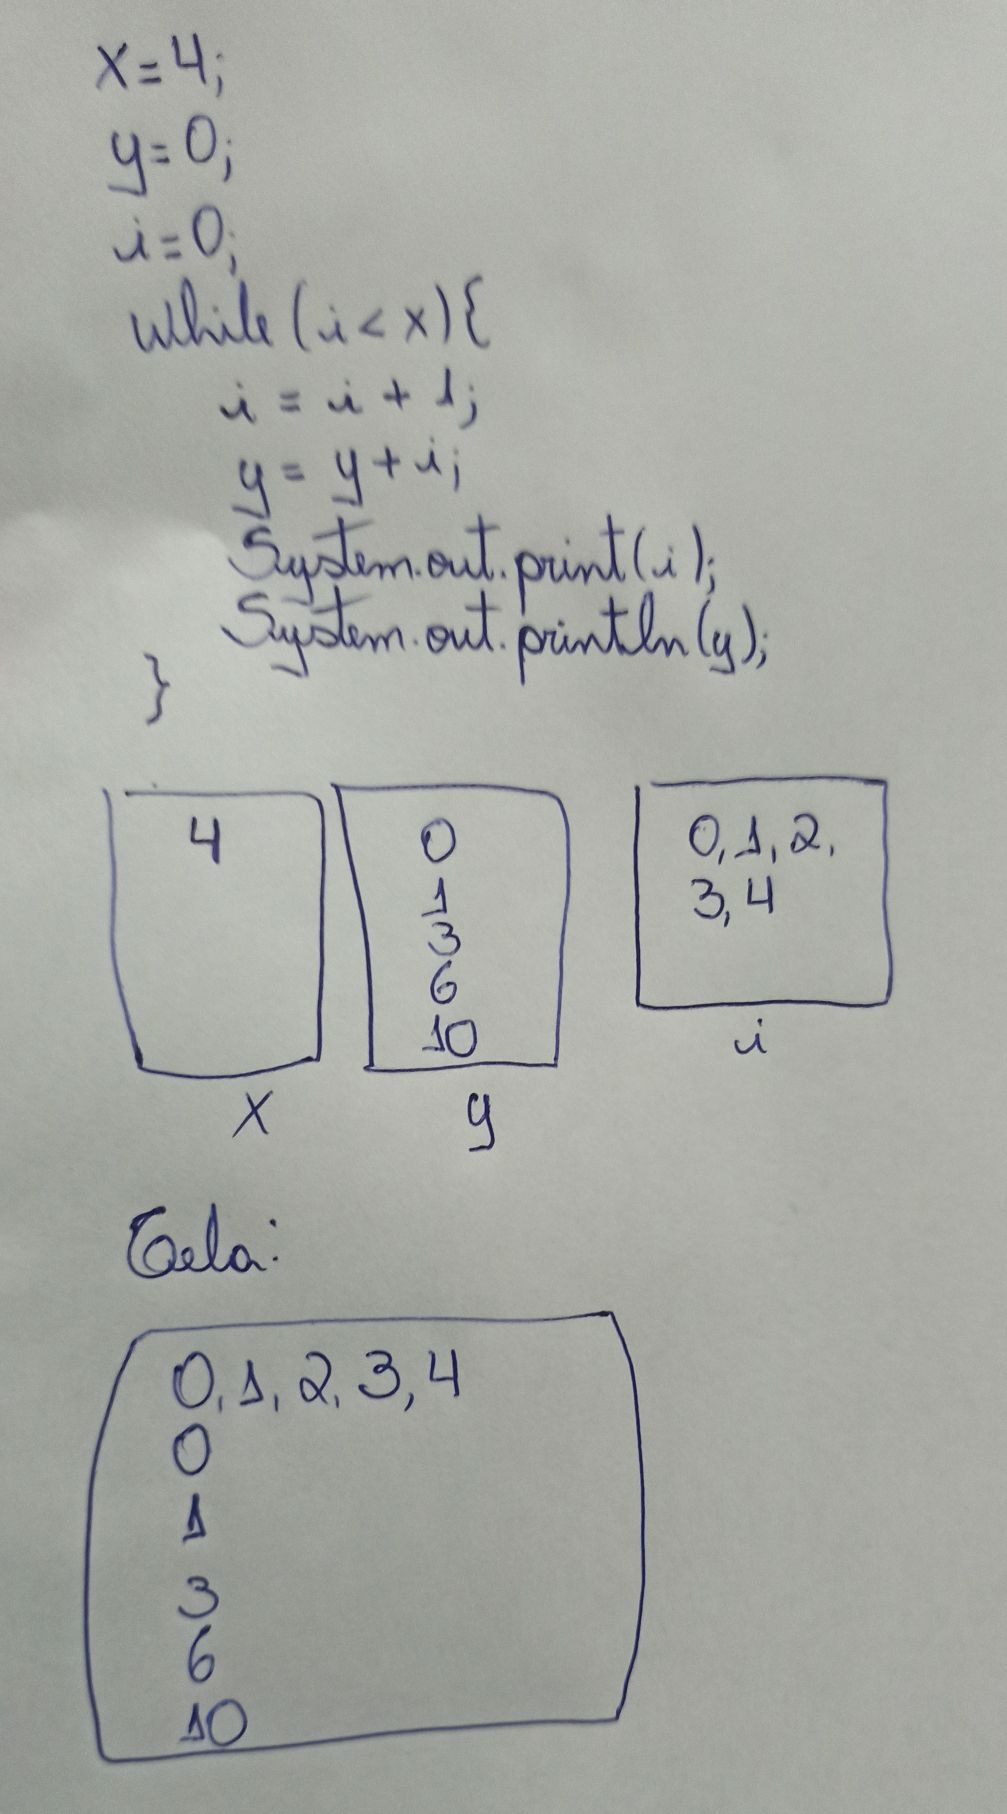 x=4;
y=0;
i=0;
while(i<x){
i = i + 1;
y = y + i;
System.out.print(i);
System.out.println(y);
}
4
0
1
3
6
10
0, 1, 2,
3, 4
x
y
i
Tela:
0, 1, 2, 3, 4
0
1
3
6
10